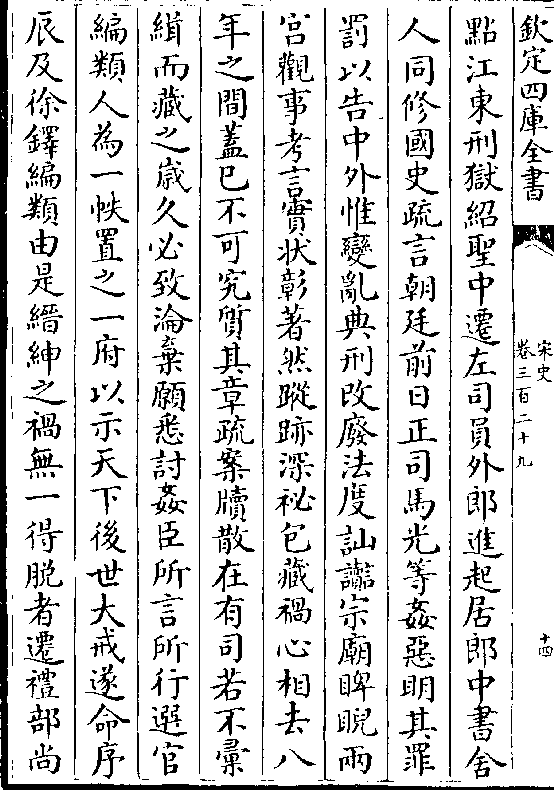 欽定四庫全書
宋史
卷三百二十九
十四
點江東刑獄紹聖中遷左司員外郎進起居郎中書舍
人同修國史疏言朝廷前日正司馬光等姦惡明其罪
罰以告中外惟變亂典刑改廢法度訕讟宗廟睥睨兩
宮觀事考言實狀彰著然蹤跡深祕包藏禍心相去八
年之間蓋已不可究質其章疏案牘散在有司若不彙
緝而藏之歲久必致淪棄願悉討姦臣所言所行選官
編類人為一帙置之一府以示天下後世大戒遂命序
辰及徐鐸編類由是縉紳之禍無一得脫者遷禮部尚